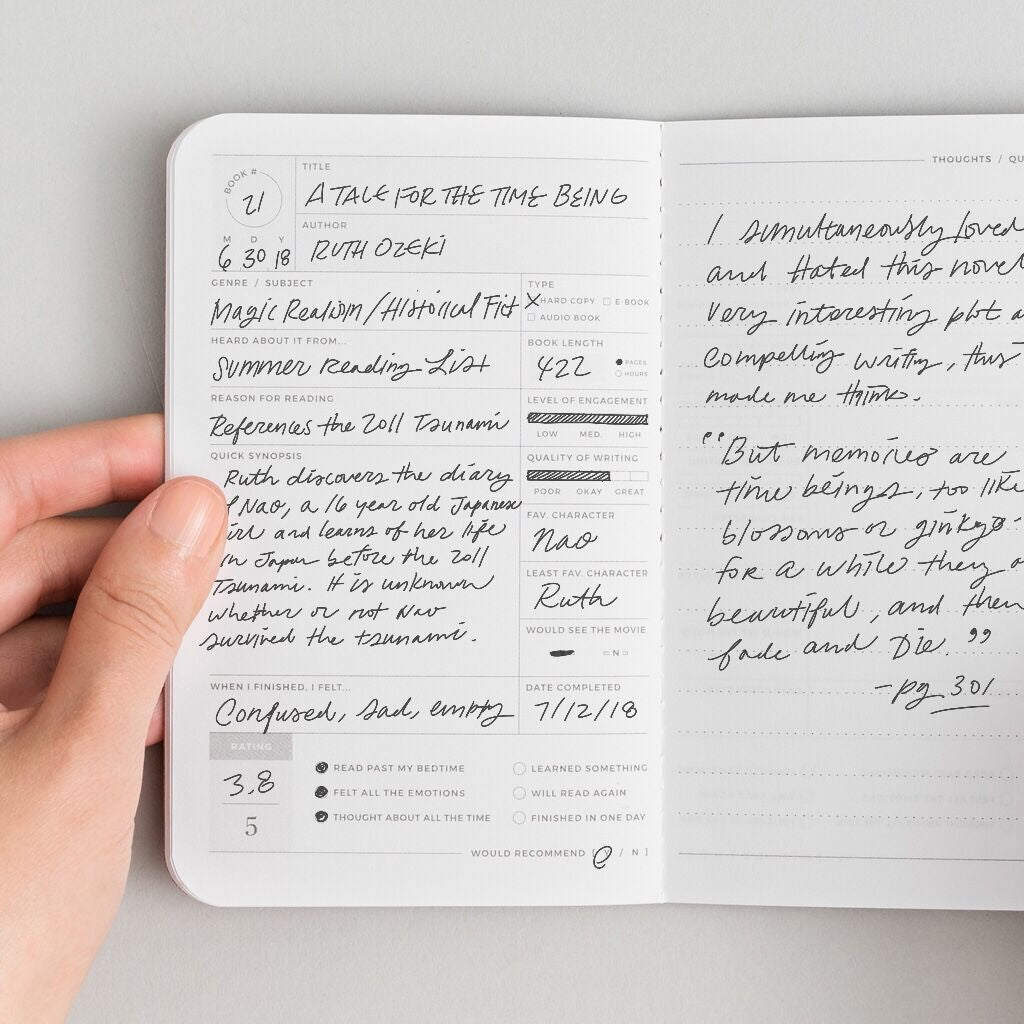 BOOK #
21
M D Y
6 30 18
TITLE
A TALE FOR THE TIME BEING
AUTHOR
RUTH OZEKI
GENRE / SUBJECT
Magic Realism/Historical Fict
TYPE
HARD COPY E-BOOK
AUDIO BOOK
HEARD ABOUT IT FROM...
Summer Reading List
BOOK LENGTH
422
PAGES
HOURS
REASON FOR READING
References the 2011 Tsunami
LEVEL OF ENGAGEMENT
LOW MED. HIGH
QUICK SYNOPSIS
Ruth discovers the diary
f Nao, a 16 year old Japanese
irl and learns of her life
in Japan before the 2011
Tsunami. It is unknown
whether or not Nao
survived the tsunami.
QUALITY OF WRITING
POOR OKAY GREAT
FAV. CHARACTER
Nao
LEAST FAV. CHARACTER
Ruth
WOULD SEE THE MOVIE
N
WHEN I FINISHED, I FELT...
Confused, sad, empty
DATE COMPLETED
7/12/18
RATING
3.8
5
READ PAST MY BEDTIME
FELT ALL THE EMOTIONS
THOUGHT ABOUT ALL THE TIME
LEARNED SOMETHING
WILL READ AGAIN
FINISHED IN ONE DAY
WOULD RECOMMEND [ Y / N ]
THOUGHTS / QU
I simultaneously loved
and Hated this novel
very interesting plot a
compelling writing, this
made me think.
"But memories are
time beings, too like
blossoms or ginkgo
for a while they a
beautiful, and then
fade and Die."
-pg 301